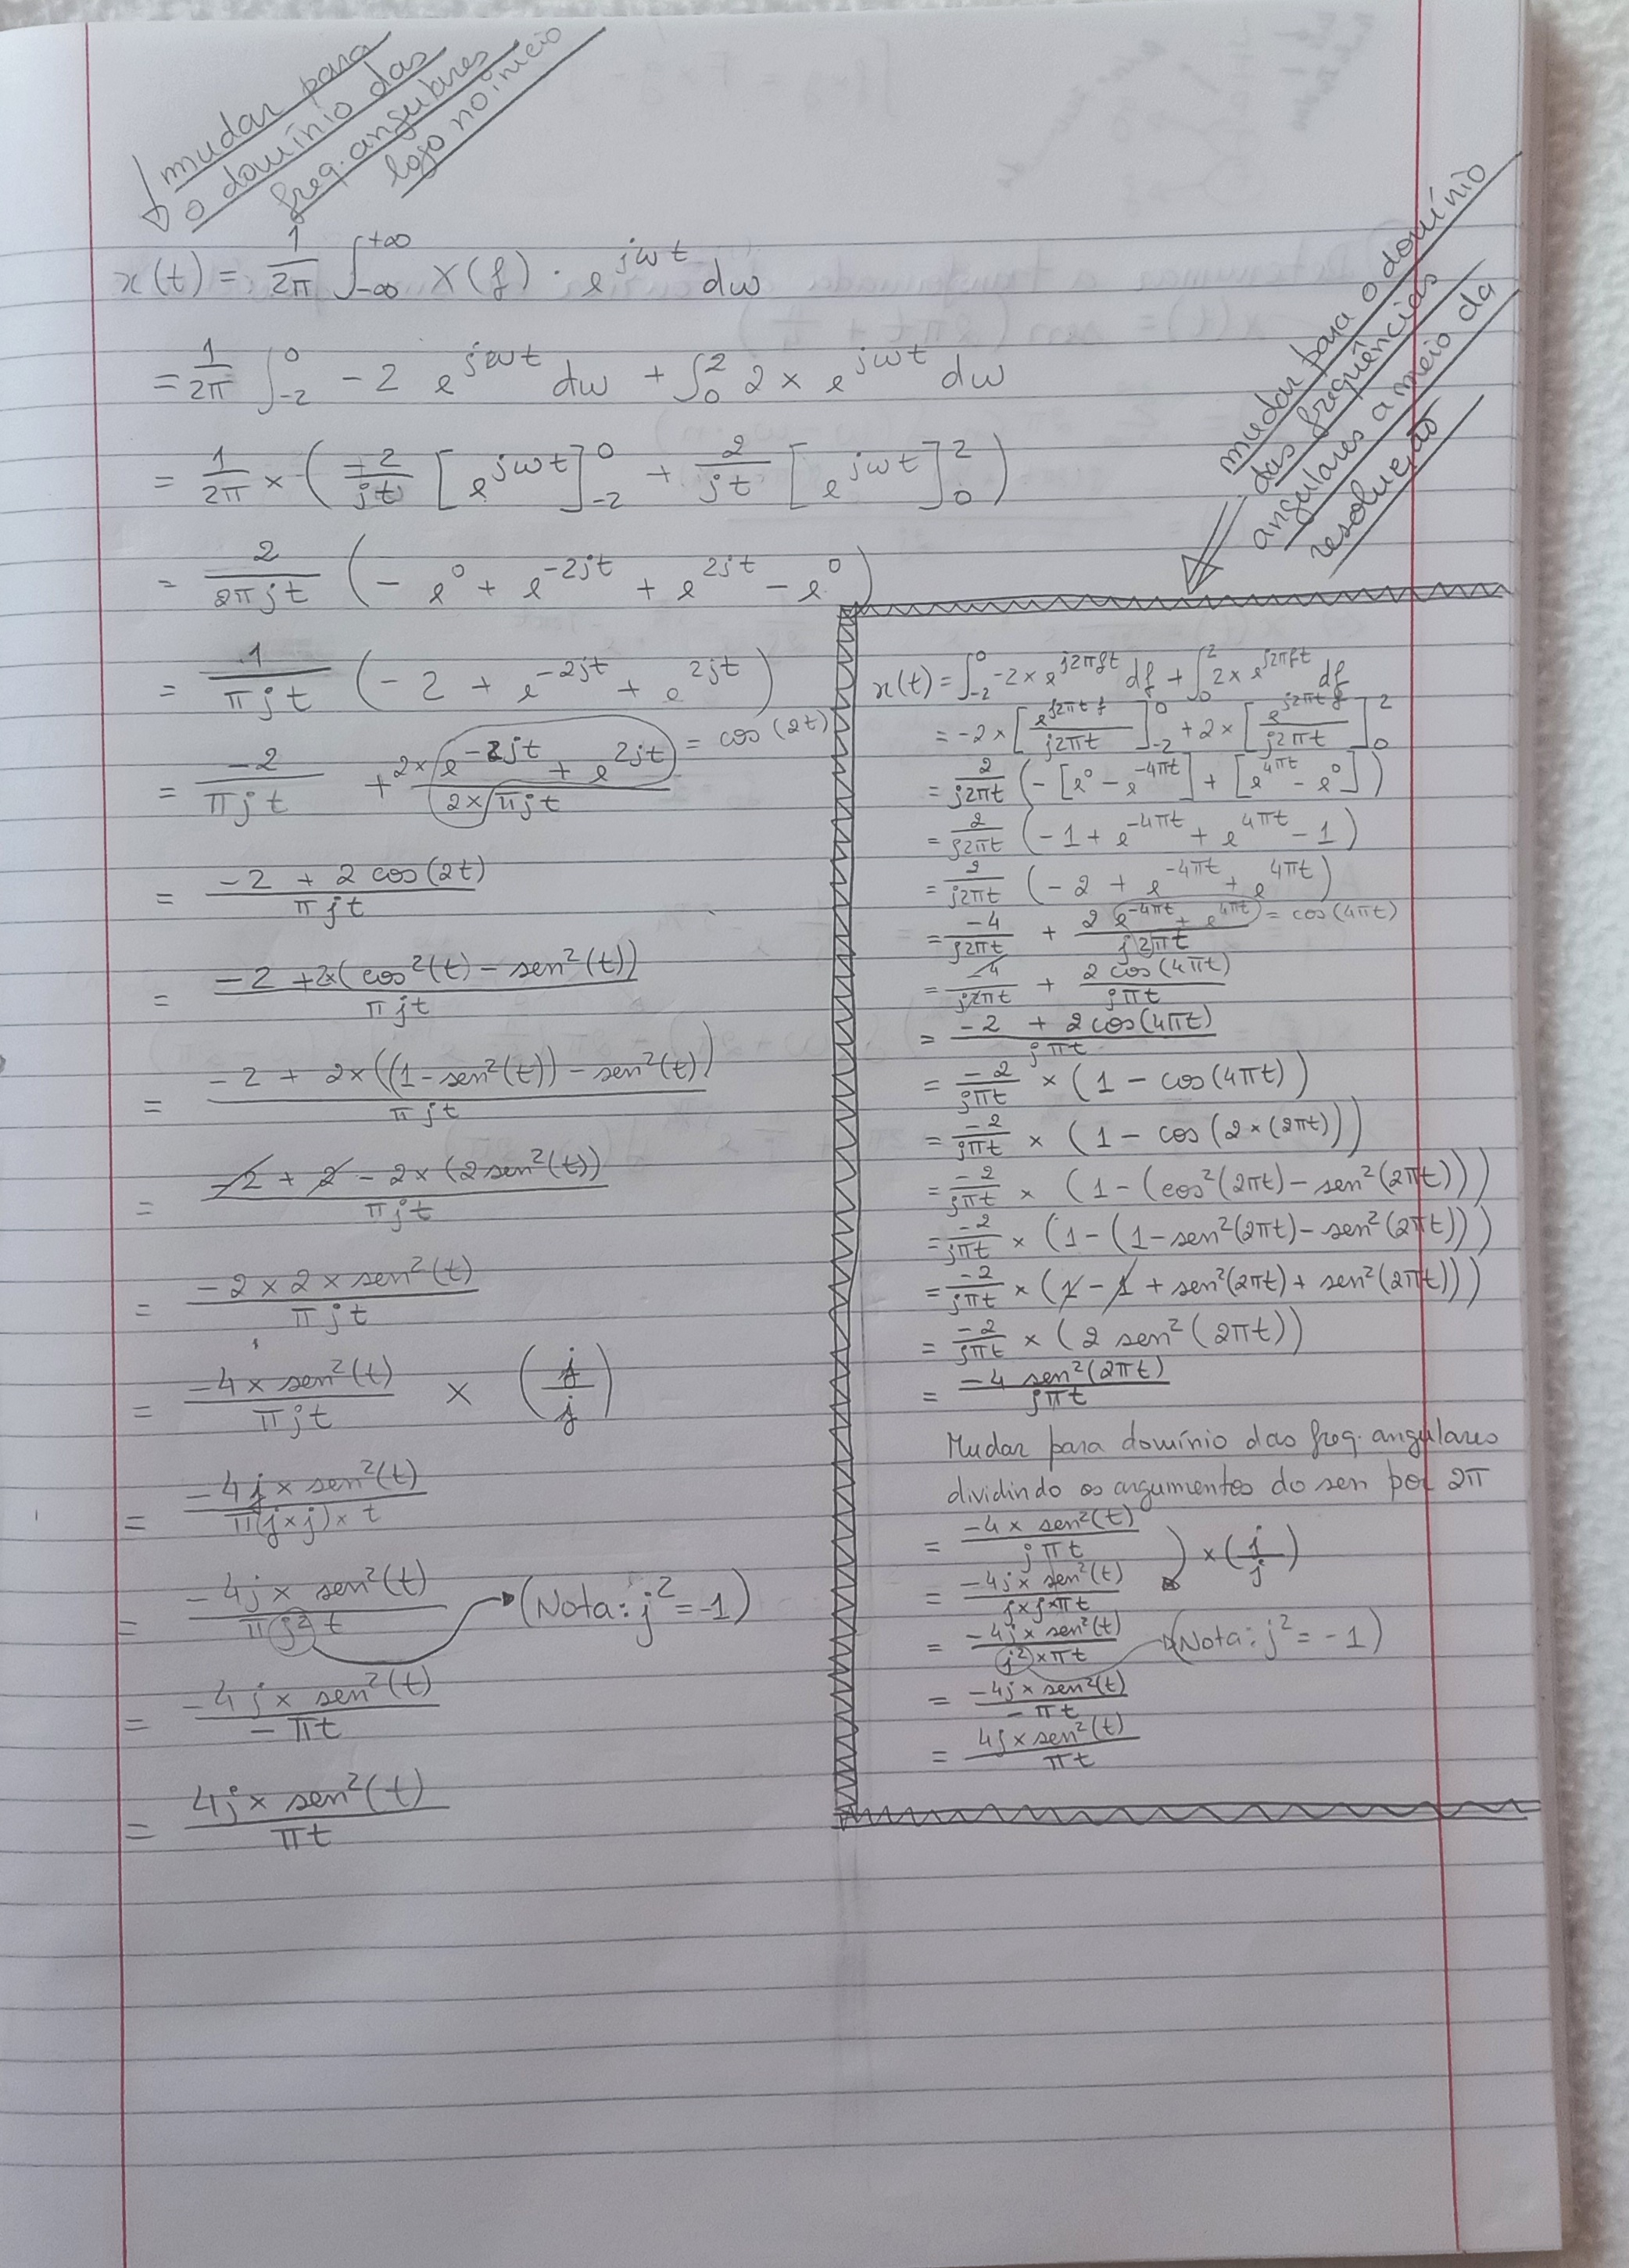 mudar para
o domínio das
freq. angulares
logo no início
x(t) = 1/2π ∫_{-∞}^{+∞} X(f) · e^{jωt} dω
= 1/2π ∫_{-2}^{0} -2 e^{jωt} dω + ∫_{0}^{2} 2 × e^{jωt} dω
= 1/2π × ( -2/jt [ e^{jωt} ]_{-2}^{0} + 2/jt [ e^{jωt} ]_{0}^{2} )
= 2/2πjt ( - e^0 + e^{-2jt} + e^{2jt} - e^0 )
= 1/πjt ( - 2 + e^{-2jt} + e^{2jt} )
= -2/πjt + 2×(e^{-2jt} + e^{2jt})/(2×πjt) = cos(2t)
= (-2 + 2 cos(2t))/πjt
= (-2 + 2×(cos²(t) - sen²(t)))/πjt
= (-2 + 2×((1-sen²(t)) - sen²(t)))/πjt
= (-2 + 2 - 2×(2sen²(t)))/πjt
= (-2 × 2 × sen²(t))/πjt
= (-4 × sen²(t))/πjt × (j/j)
= (-4j × sen²(t))/(π(j×j)×t)
= (-4j × sen²(t))/(πj²t) (Nota: j² = -1)
= (-4j × sen²(t))/(-πt)
= (4j × sen²(t))/πt
mudar para o domínio
das frequências
angulares a meio da
resolução
x(t) = ∫_{-2}^{0} -2 × e^{j2πft} df + ∫_{0}^{2} 2 × e^{j2πft} df
= -2 × [ e^{j2πtf}/j2πt ]_{-2}^{0} + 2 × [ e^{j2πtf}/j2πt ]_{0}^{2}
= 2/j2πt ( - [ e^0 - e^{-4πt} ] + [ e^{4πt} - e^0 ] )
= 2/j2πt ( - 1 + e^{-4πt} + e^{4πt} - 1 )
= 2/j2πt ( - 2 + e^{-4πt} + e^{4πt} )
= -4/j2πt + 2 (e^{-4πt} + e^{4πt})/j2πt = cos(4πt)
= -4/j2πt + 2 cos(4πt)/jπt
= (-2 + 2cos(4πt))/jπt
= -2/jπt × (1 - cos(4πt))
= -2/jπt × (1 - cos(2×(2πt)))
= -2/jπt × (1 - (cos²(2πt) - sen²(2πt)))
= -2/jπt × (1 - (1 - sen²(2πt) - sen²(2πt)))
= -2/jπt × (1 - 1 + sen²(2πt) + sen²(2πt)))
= -2/jπt × (2 sen²(2πt))
= -4 sen²(2πt)/jπt
Mudar para domínio das freq. angulares
dividindo os argumentos do sen por 2π
= (-4 × sen²(t))/jπt ) × (j/j)
= (-4j × sen²(t))/(j×j×πt)
= (-4j × sen²(t))/(j²×πt) (Nota: j² = -1)
= (-4j × sen²(t))/(-πt)
= (4j × sen²(t))/πt